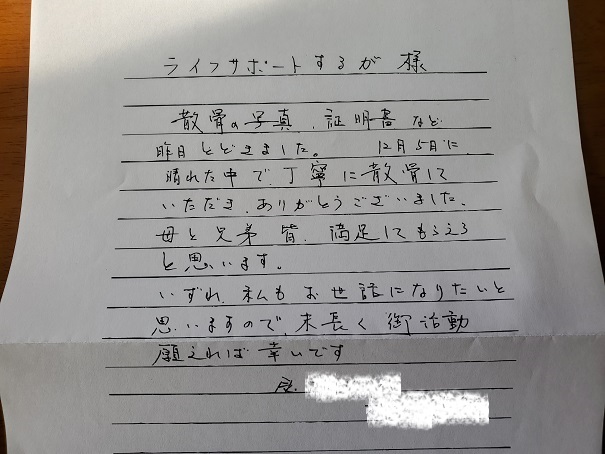 ライフサポートするが 様
散骨の写真、証明書など
昨日とどきました。 12月5日に
晴れた中で、丁寧に散骨して
いただき、ありがとうございました。
母と兄弟皆、満足してもらえる
と思います。
いずれ、私もお世話になりたいと
思いますので、末長く御活動
願えれば幸いです